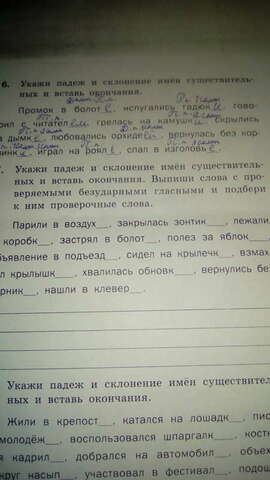 6. Укажи падеж и склонение имён существитель-
ных и вставь окончания.
Промок в болот е, испугались гадюк и, гово-
рил с читател ем, грелась на камушк е, скрылись
в дымк е, любовались орхиде ей, вернулась без кор-
зинк и, играл на роял е, спал в изголовь е.
Укажи падеж и склонение имён существитель-
ных и вставь окончания. Выпиши слова с про-
веряемыми безударными гласными и подбери
к ним проверочные слова.
Парили в воздух__, закрылась зонтик__, лежали
коробк__, застрял в болот__, полез за яблок__
объявление в подъезд__, сидел на крылечк__, взмах
крылышк__, хвалилась обновк__, вернулись без
рник__, нашли в клевер__.
Укажи падеж и склонение имён существител
ных и вставь окончания.
Жили в крепост__, катался на лошадк__, пис
молодёж__, воспользовался шпаргалк__, кост
кадрил__, добрался на автомобил__, объех
круг насып__, участвовал в фестивал__, подош